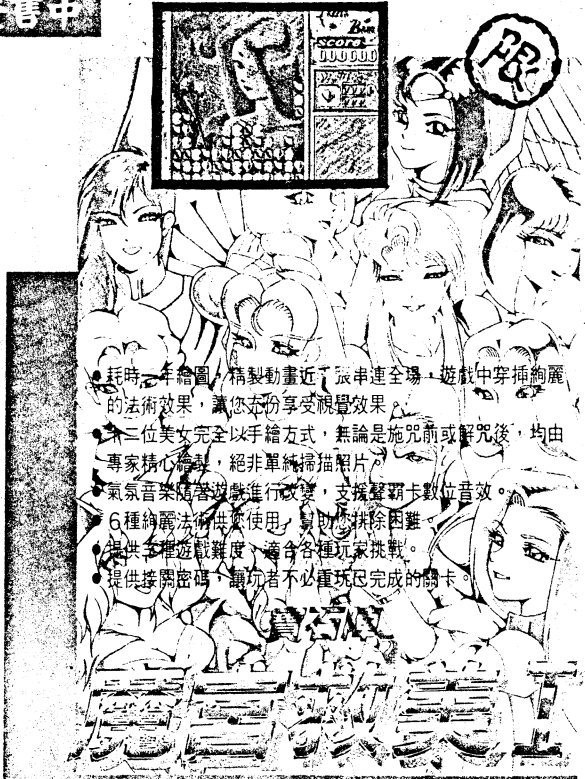 售中
Score
000000
●耗時一年繪圖，精製動畫近千張串連全場，遊戲中穿插絢麗
的法術效果，讓您充份享受視覺效果。
●十二位美女完全以手繪方式，無論是施咒前或解咒後，均由
專家精心繪製，絕非單純掃描照片。
●氣氛音樂隨著遊戲進行改變，支援聲霸卡數位音效。
●6種絢麗法術供您使用，幫助您排除困難。
●提供種遊戲難度，適合各種玩家挑戰。
●提供接關密碼，讓玩者不必重玩已完成的關卡。
魔宮救美